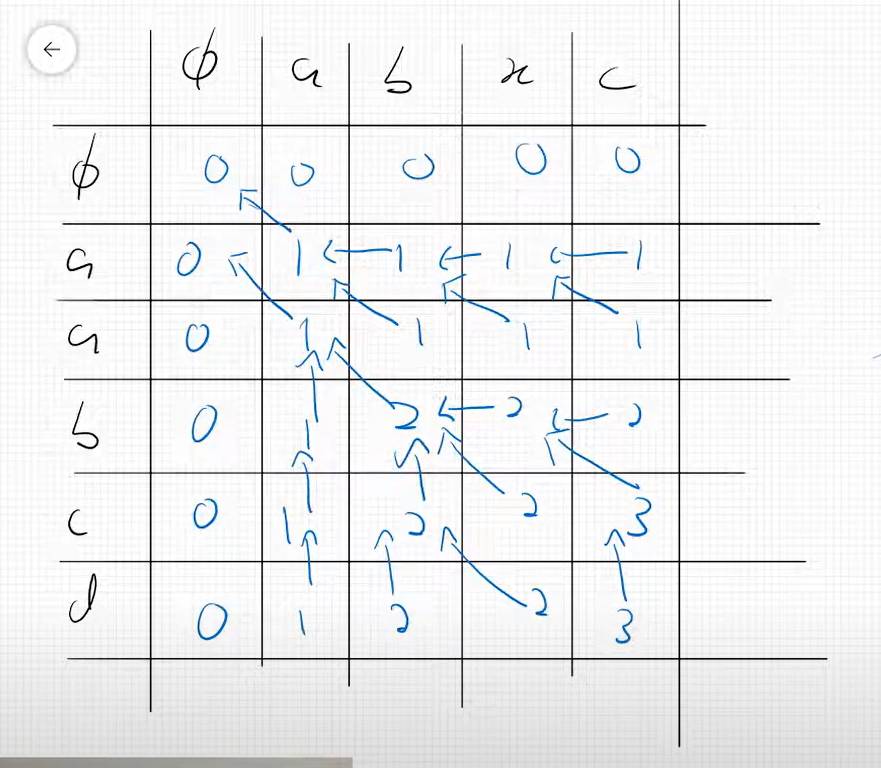 ϕ a b x c
ϕ 0 0 0 0 0
a 0 1 1 1 1
a 0 1 1 1 1
b 0 1 2 2 2
c 0 1 2 2 3
d 0 1 2 2 3